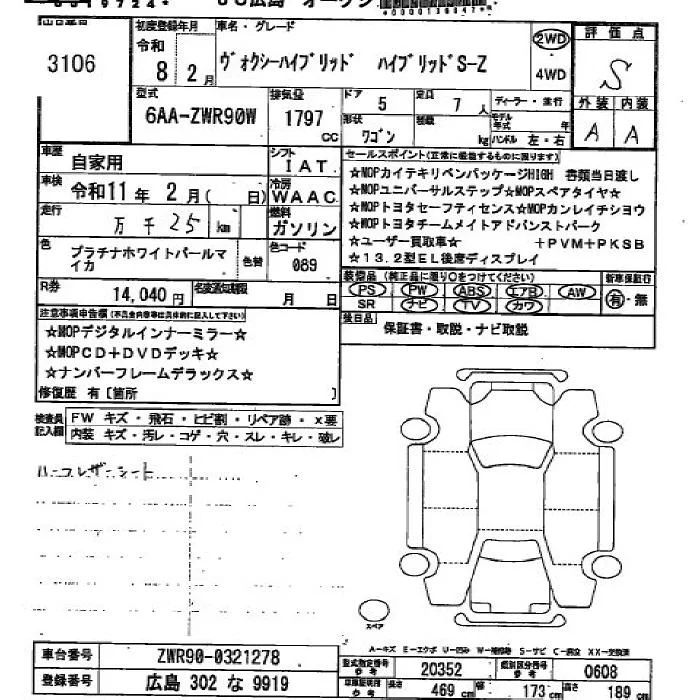 JU広島 オークシ
出品番号
3106
初度登録年月
令和
8年 2月
車名・グレード
ヴォクシーハイブリッド ハイブリッドS-Z
2WD
4WD
評価点
S
外装 内装
A A
型式
6AA-ZWR90W
排気量
1797
CC
ドア 5
定員 7人
ディーラー・並行
形状 ワゴン
積載 kg
モデル年式 年
ハンドル 左・右
車歴 自家用
シフト IAT
車検 令和11年 2月( 日)
冷房 WAAC
走行 万 千 25 km
燃料 ガソリン
色 プラチナホワイトパールマイカ
色替
色コード 089
R券 14,040円
名変通知期限 月 日
セールスポイント(正常に機能するものに限ります)
★MOPカイテキリペンパッケージHIGH 書類当日渡し
★MOPユニバーサルステップ★MOPスペアタイヤ★
★MOPトヨタセーフティセンス★MOPカンレイチシヨウ
★MOPトヨタチームメイトアドバンストパーク
★ユーザー買取車★ +PVM+PKSB
★13.2型EL後席ディスプレイ
装備品(純正品に限り○をつけてください)
PS PW ABS エアB AW
SR ナビ TV カワ
新車保証書
有・無
後日品
保証書・取説・ナビ取説
注意事項申告欄(不具合内容等は具体的に記入して下さい)
★MOPデジタルインナーミラー★
★MOPCD+DVDデッキ★
★ナンバーフレームデラックス★
修復歴 有[箇所 ]
検査員記入欄
FW キズ・飛石・ヒビ割・リペア跡・X要
内装 キズ・汚レ・コゲ・穴・スレ・キレ・破レ
ハーフレザーシート
スペア
A-キズ E-エクボ U-凹み W-補修跡 S-サビ C-腐食 XX-交換済
車台番号 ZWR90-0321278
登録番号 広島 302 な 9919
型式指定番号 参考 20352
類別区分番号 参考 0608
車庫証明用 参考
長さ 469cm
幅 173cm
高さ 189cm